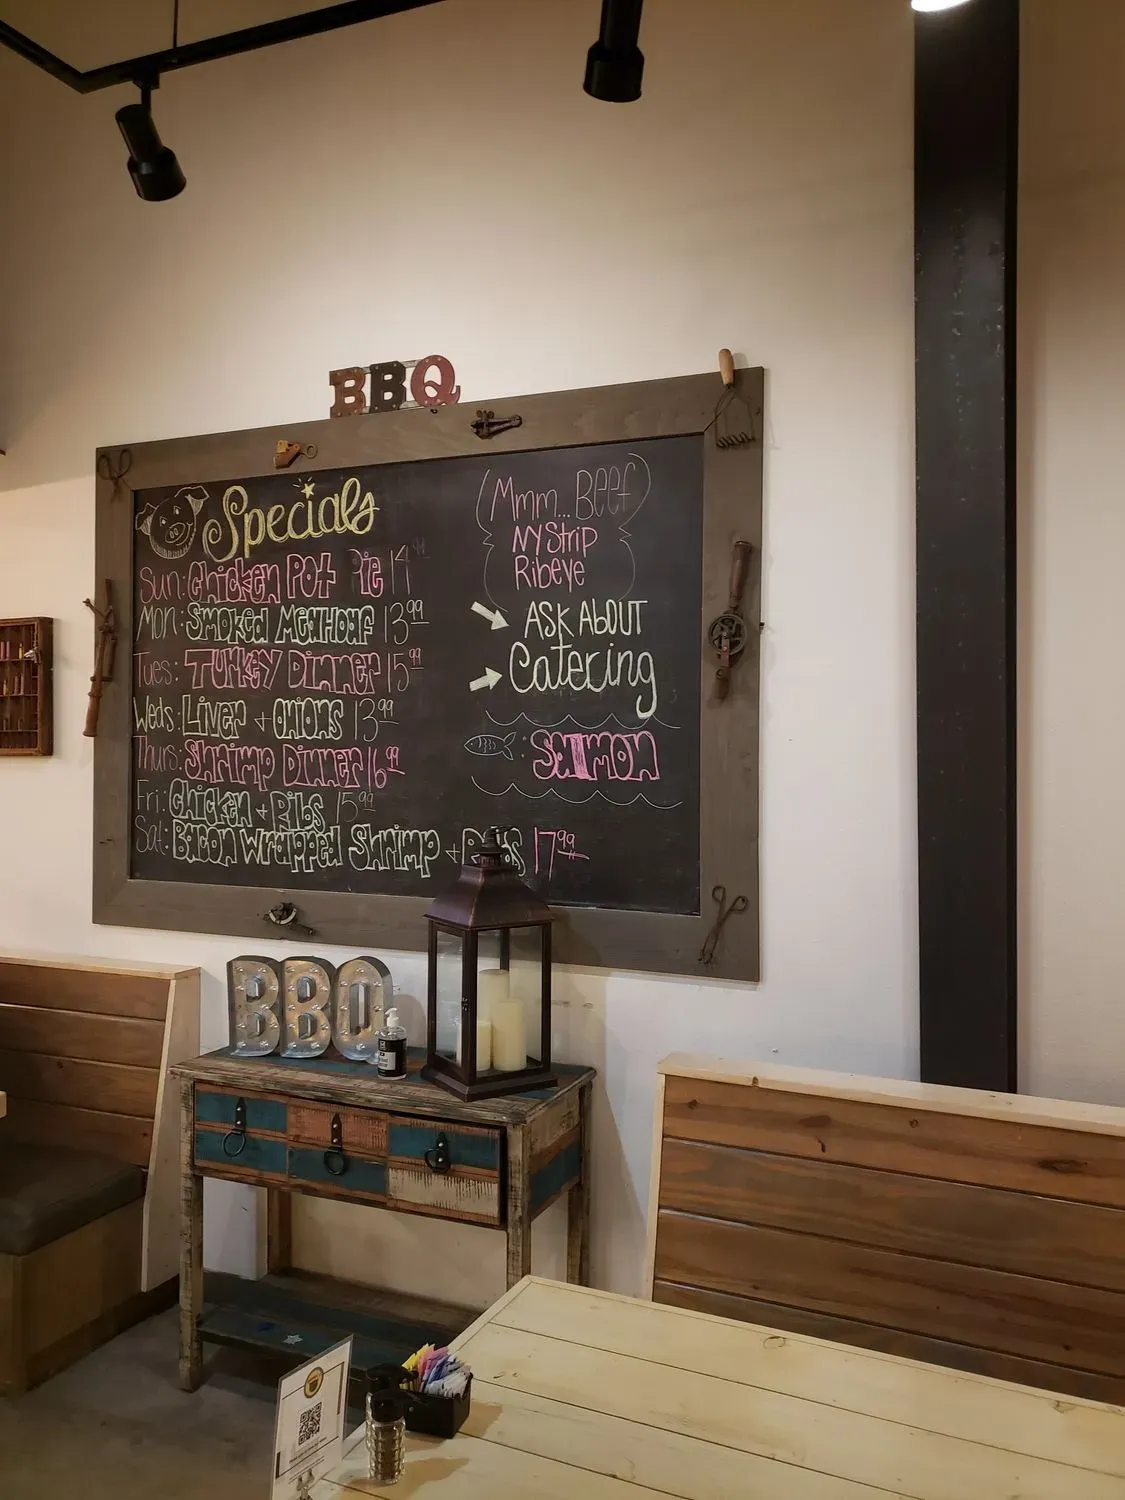 BBQ
Specials
Sun: Chicken Pot Pie 14
Mon: Smoked Meatloaf 13.99
Tues: Turkey Dinner 15.99
Weds: Liver + Onions 13.99
Thurs: Shrimp Dinner 16.99
Fri: Chicken + Ribs 15.99
Sat: Bacon Wrapped Shrimp + Ribs 17.99
Mmm... Beef
NY Strip
Ribeye
ASK ABOUT
Catering
Salmon
BBQ